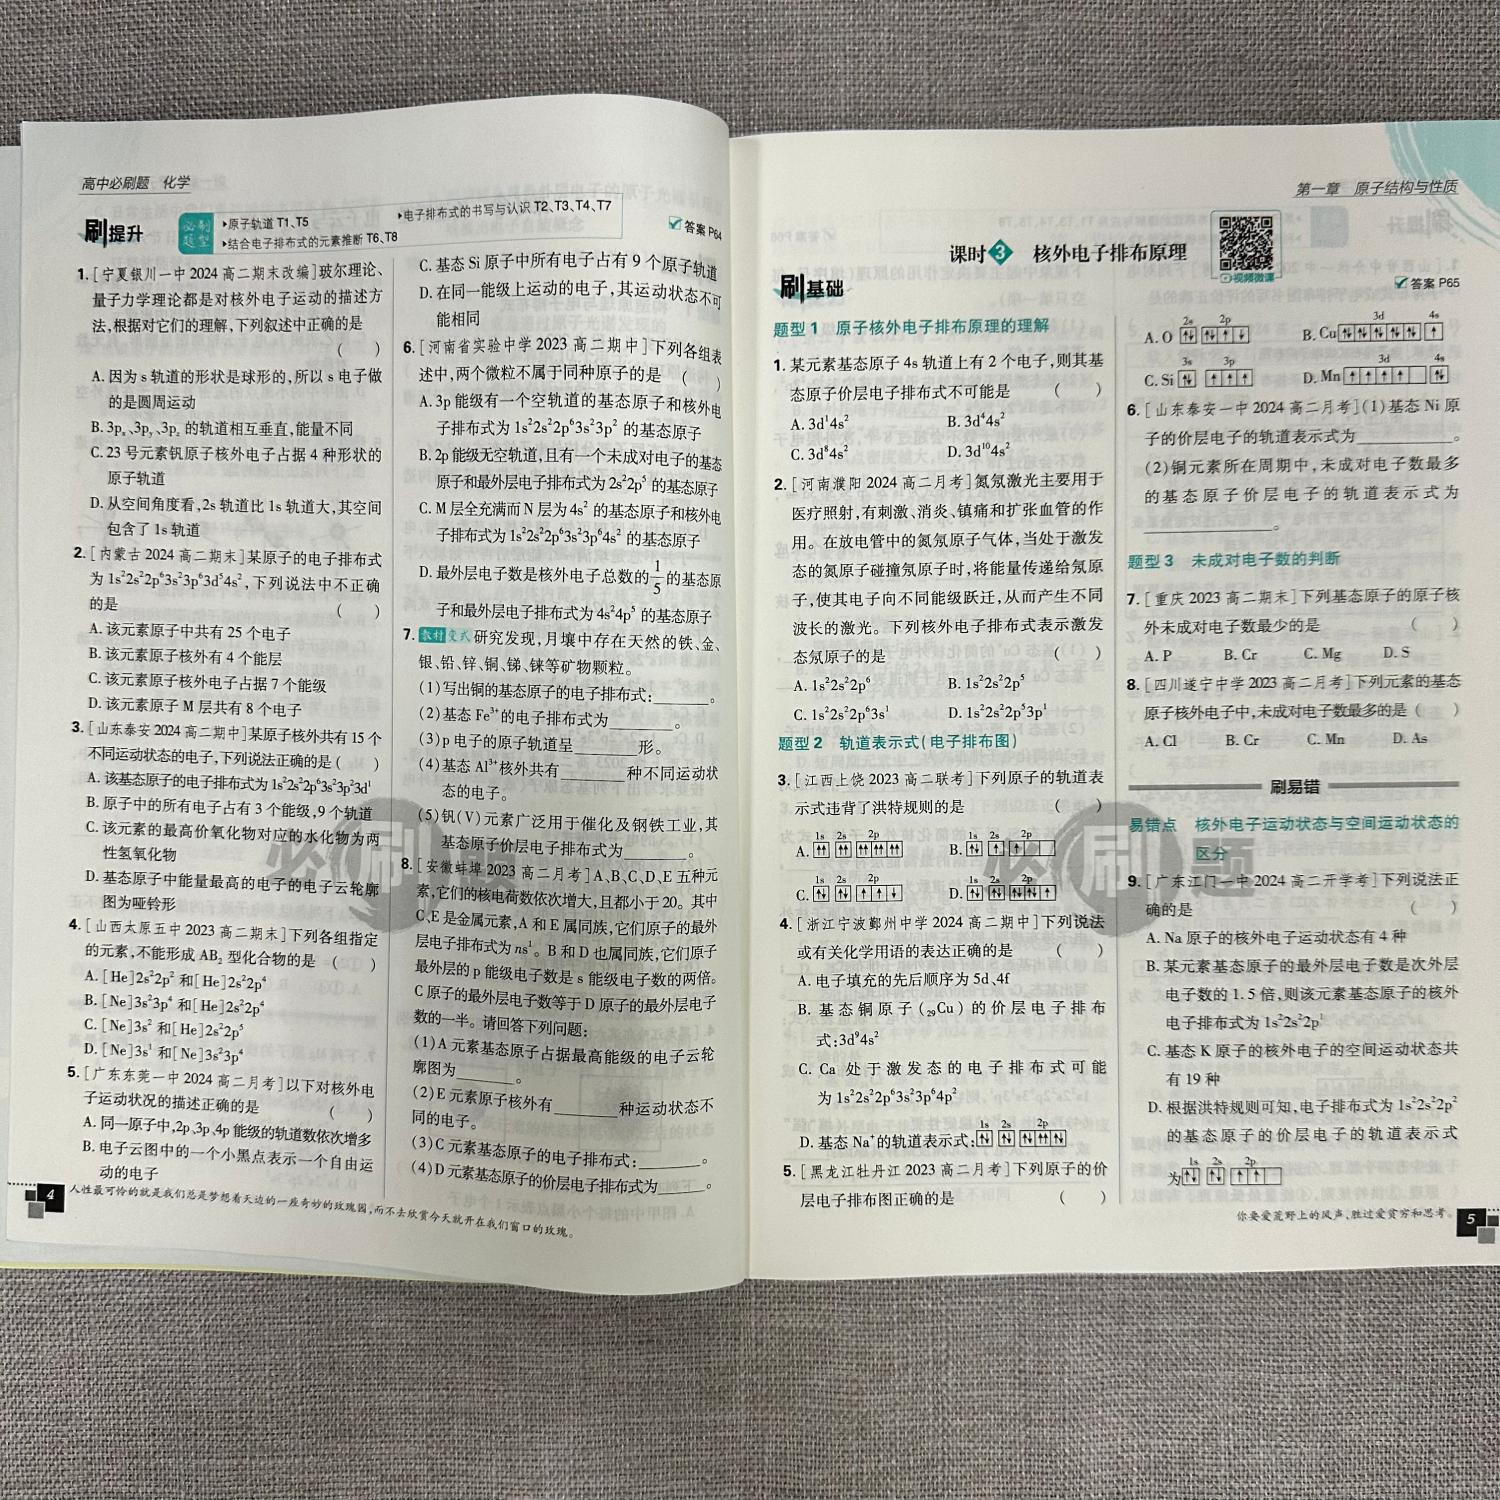 高中必刷题 化学
刷提升
必刷题型
▸原子轨道 T1、T5
▸电子排布式的书写与认识 T2、T3、T4、T7
▸结合电子排布式的元素推断 T6、T8
答案 P64
1.[宁夏银川一中2024高二期末改编]玻尔理论、
量子力学理论都是对核外电子运动的描述方
法,根据对它们的理解,下列叙述中正确的是
( )
A.因为s轨道的形状是球形的,所以s电子做
的是圆周运动
B.3pₓ、3pᵧ、3p_z的轨道相互垂直,能量不同
C.23号元素钒原子核外电子占据4种形状的
原子轨道
D.从空间角度看,2s轨道比1s轨道大,其空间
包含了1s轨道
2.[内蒙古2024高二期末]某原子的电子排布式
为1s²2s²2p⁶3s²3p⁶3d⁵4s²,下列说法中不正确
的是 ( )
A.该元素原子中共有25个电子
B.该元素原子核外有4个能层
C.该元素原子核外电子占据7个能级
D.该元素原子M层共有8个电子
3.[山东泰安2024高二期中]某原子核外共有15个
不同运动状态的电子,下列说法正确的是( )
A.该基态原子的电子排布式为1s²2s²2p⁶3s²3p²3d¹
B.原子中的所有电子占有3个能级,9个轨道
C.该元素的最高价氧化物对应的水化物为两
性氢氧化物
D.基态原子中能量最高的电子的电子云轮廓
图为哑铃形
4.[山西太原五中2023高二期末]下列各组指定
的元素,不能形成AB₂型化合物的是 ( )
A.[He]2s²2p²和[He]2s²2p⁴
B.[Ne]3s²3p⁴和[He]2s²2p⁴
C.[Ne]3s²和[He]2s²2p⁵
D.[Ne]3s¹和[Ne]3s²3p⁴
5.[广东东莞一中2024高二月考]以下对核外电
子运动状况的描述正确的是 ( )
A.同一原子中,2p、3p、4p能级的轨道数依次增多
B.电子云图中的一个小黑点表示一个自由运
动的电子
C.基态Si原子中所有电子占有9个原子轨道
D.在同一能级上运动的电子,其运动状态不可
能相同
6.[河南省实验中学2023高二期中]下列各组表
述中,两个微粒不属于同种原子的是 ( )
A.3p能级有一个空轨道的基态原子和核外电
子排布式为1s²2s²2p⁶3s²3p²的基态原子
B.2p能级无空轨道,且有一个未成对电子的基态
原子和最外层电子排布式为2s²2p⁵的基态原子
C.M层全充满而N层为4s²的基态原子和核外电
子排布式为1s²2s²2p⁶3s²3p⁶4s²的基态原子
D.最外层电子数是核外电子总数的1/5的基态原
子和最外层电子排布式为4s²4p⁵的基态原子
7.教材变式 研究发现,月壤中存在天然的铁、金、
银、铅、锌、铜、锑、铼等矿物颗粒。
(1)写出铜的基态原子的电子排布式:________。
(2)基态Fe³⁺的电子排布式为________。
(3)p电子的原子轨道呈________形。
(4)基态Al³⁺核外共有________种不同运动状
态的电子。
(5)钒(V)元素广泛用于催化及钢铁工业,其
基态原子价层电子排布式为________。
8.[安徽蚌埠2023高二月考]A、B、C、D、E五种元
素,它们的核电荷数依次增大,且都小于20。其中
C、E是金属元素,A和E属同族,它们原子的最外
层电子排布式为ns¹。B和D也属同族,它们原子
最外层的p能级电子数是s能级电子数的两倍。
C原子的最外层电子数等于D原子的最外层电子
数的一半。请回答下列问题:
(1)A元素基态原子占据最高能级的电子云轮
廓图为________。
(2)E元素原子核外有________种运动状态不
同的电子。
(3)C元素基态原子的电子排布式:________。
(4)D元素基态原子的价层电子排布式为________。
4 人性最可怜的就是我们总是梦想着天边的一座奇妙的玫瑰园,而不去欣赏今天就开在我们窗口的玫瑰。
第一章 原子结构与性质
课时3 核外电子排布原理
视频微课
刷基础
答案 P65
题型1 原子核外电子排布原理的理解
1.某元素基态原子4s轨道上有2个电子,则其基
态原子价层电子排布式不可能是 ( )
A.3d¹4s² B.3d⁴4s²
C.3d⁸4s² D.3d¹⁰4s²
2.[河南濮阳2024高二月考]氮氖激光主要用于
医疗照射,有刺激、消炎、镇痛和扩张血管的作
用。在放电管中的氮氖原子气体,当处于激发
态的氮原子碰撞氖原子时,将能量传递给氖原
子,使其电子向不同能级跃迁,从而产生不同
波长的激光。下列核外电子排布式表示激发
态氖原子的是 ( )
A.1s²2s²2p⁶ B.1s²2s²2p⁵
C.1s²2s²2p⁶3s¹ D.1s²2s²2p⁵3p¹
题型2 轨道表示式(电子排布图)
3.[江西上饶2023高二联考]下列原子的轨道表
示式违背了洪特规则的是 ( )
1s 2s 2p 1s 2s 2p
A.↑↑ ↑↑ ↑↑ ↑↑ ↑↑ B.↑↓ ↑ ↑
1s 2s 2p 1s 2s 2p
C.↑↓ ↑↓ ↑ ↑ ↓ D.↑↓ ↑↓ ↑↓ ↑↓ ↑
4.[浙江宁波鄞州中学2024高二期中]下列说法
或有关化学用语的表达正确的是 ( )
A.电子填充的先后顺序为5d、4f
B.基态铜原子(₂₉Cu)的价层电子排布
式:3d⁹4s²
C.Ca处于激发态的电子排布式可能
为1s²2s²2p⁶3s²3p⁶4p²
1s 2s 2p
D.基态Na⁺的轨道表示式:↑↓ ↑↓ ↑↓ ↑↓ ↑↓
5.[黑龙江牡丹江2023高二月考]下列原子的价
层电子排布图正确的是 ( )
2s 2p 3d 4s
A.O ↑↓ ↑↓ ↑ ↓ B.Cu ↑↓ ↑↓ ↑↓ ↑↓ ↑↓ ↑
3s 3p 3d 4s
C.Si ↑↓ ↑ ↑ ↑ D.Mn ↑ ↑ ↑ ↑ ↑↓
6.[山东泰安一中2024高二月考](1)基态Ni原
子的价层电子的轨道表示式为________。
(2)铜元素所在周期中,未成对电子数最多
的基态原子价层电子的轨道表示式为
________。
题型3 未成对电子数的判断
7.[重庆2023高二期末]下列基态原子的原子核
外未成对电子数最少的是 ( )
A.P B.Cr C.Mg D.S
8.[四川遂宁中学2023高二月考]下列元素的基态
原子核外电子中,未成对电子数最多的是( )
A.Cl B.Cr C.Mn D.As
刷易错
易错点 核外电子运动状态与空间运动状态的
区分
9.[广东江门一中2024高二开学考]下列说法正
确的是 ( )
A.Na原子的核外电子运动状态有4种
B.某元素基态原子的最外层电子数是次外层
电子数的1.5倍,则该元素基态原子的核外
电子排布式为1s²2s²2p¹
C.基态K原子的核外电子的空间运动状态共
有19种
D.根据洪特规则可知,电子排布式为1s²2s²2p²
的基态原子的价层电子的轨道表示式
1s 2s 2p
为↑↓ ↑↓ ↑ ↑
你要爱荒野上的风声,胜过爱贫穷和思考。 5
必刷题
必刷题